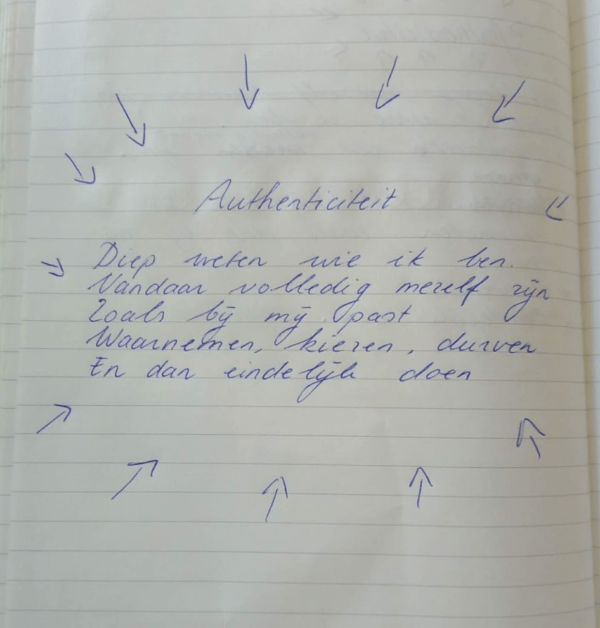 Authenticiteit
Diep weten wie ik ben.
Vandaar volledig mezelf zijn
Zoals bij mij past
Waarnemen, kiezen, durven
En dan eindelijk doen